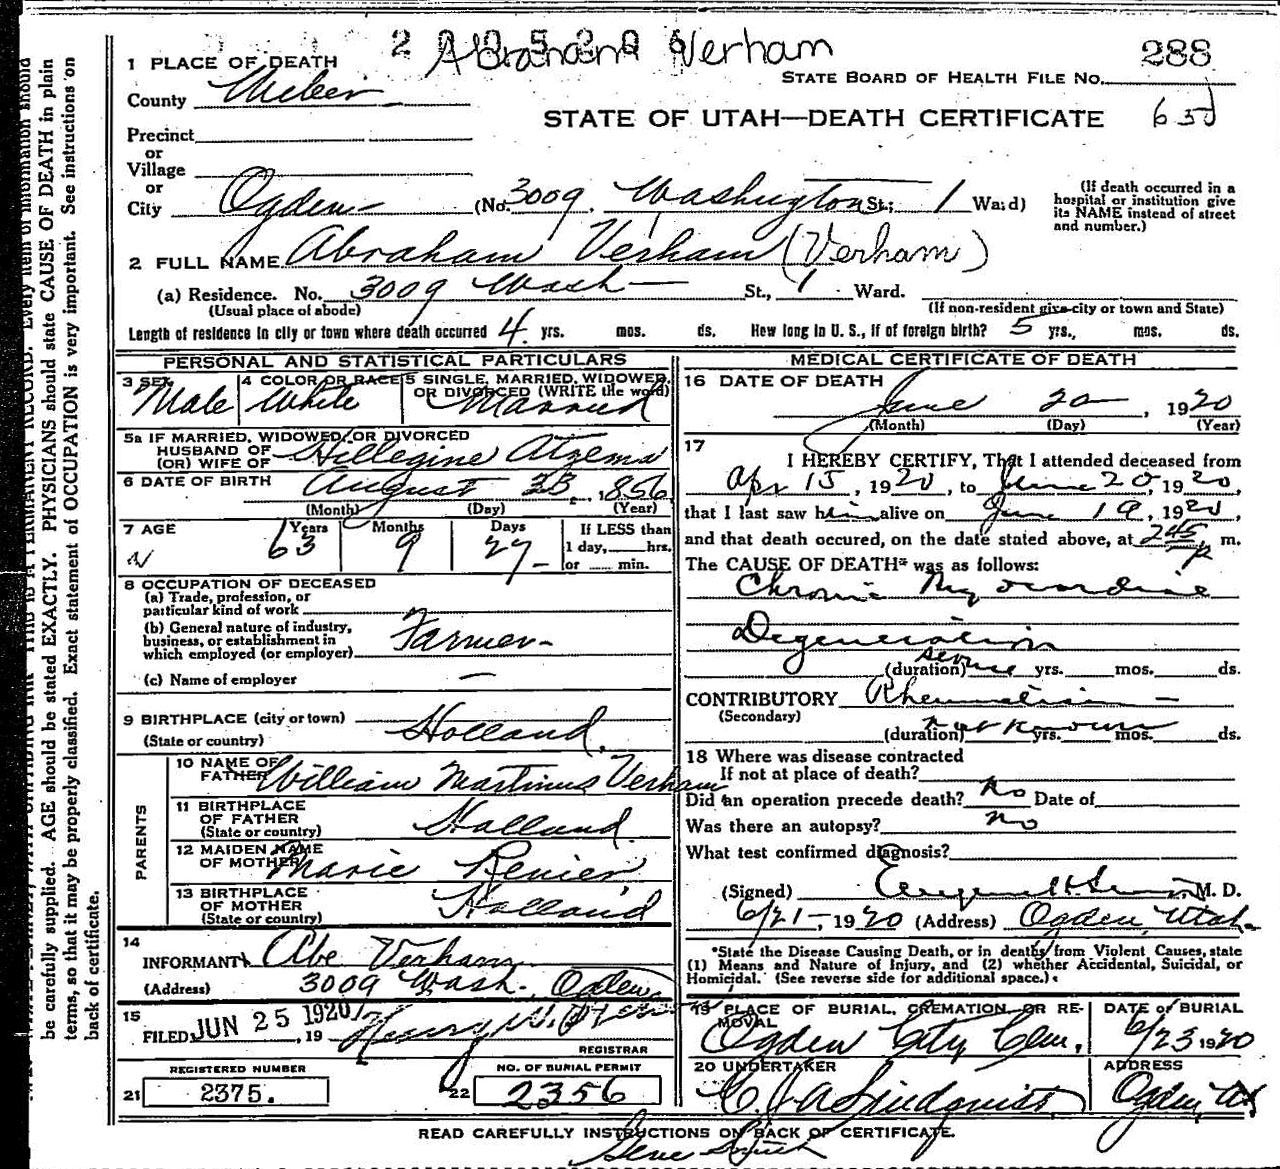 Abraham Verham
288
1 PLACE OF DEATH
STATE BOARD OF HEALTH FILE NO.
County Weber
STATE OF UTAH—DEATH CERTIFICATE
Precinct
or
Village
or
City Ogden (No. 3009 Washington St.; 1 Ward)
(If death occurred in a hospital or institution give its NAME instead of street and number.)
2 FULL NAME Abraham Verham (Verham)
(a) Residence. No. 3009 Wash St., 1 Ward.
(Usual place of abode) (If non-resident give city or town and State)
Length of residence in city or town where death occurred 4 yrs. mos. ds. How long in U. S., if of foreign birth? 5 yrs., mos. ds.
PERSONAL AND STATISTICAL PARTICULARS
3 SEX Male
4 COLOR OR RACE White
5 SINGLE, MARRIED, WIDOWED, OR DIVORCED (WRITE the word) Married
5a IF MARRIED, WIDOWED, OR DIVORCED
HUSBAND OF
(OR) WIFE OF Hillegine Atzema
6 DATE OF BIRTH August 23, 1856
(Month) (Day) (Year)
7 AGE 63 Years 9 Months 27 Days
If LESS than
1 day, hrs.
or min.
8 OCCUPATION OF DECEASED
(a) Trade, profession, or
particular kind of work
(b) General nature of industry,
business, or establishment in
which employed (or employer) Farmer
(c) Name of employer —
9 BIRTHPLACE (city or town)
(State or country) Holland
PARENTS
10 NAME OF
FATHER William Martinus Verham
11 BIRTHPLACE
OF FATHER
(State or country) Holland
12 MAIDEN NAME
OF MOTHER Marie Renier
13 BIRTHPLACE
OF MOTHER
(State or country) Holland
14
INFORMANT Abe Verham
(Address) 3009 Wash. Ogden
15
FILED JUN 25 1920, 19 Henry W.
REGISTRAR
REGISTERED NUMBER
21 2375.
NO. OF BURIAL PERMIT
22 2356
MEDICAL CERTIFICATE OF DEATH
16 DATE OF DEATH
June 20, 1920
(Month) (Day) (Year)
17
I HEREBY CERTIFY, That I attended deceased from
Apr 15, 1920, to June 20, 1920,
that I last saw him alive on June 19, 1920,
and that death occured, on the date stated above, at 245 p m.
The CAUSE OF DEATH* was as follows:
Chronic Myocardial
Degeneration
(duration) some yrs. mos. ds.
CONTRIBUTORY Rheumatism —
(Secondary)
(duration) not known yrs. mos. ds.
18 Where was disease contracted
If not at place of death?
Did an operation precede death? No Date of
Was there an autopsy? no
What test confirmed diagnosis?
(Signed) M. D.
6/21-, 1920 (Address) Ogden, Utah.
*State the Disease Causing Death, or in deaths from Violent Causes, state
(1) Means and Nature of Injury, and (2) whether Accidental, Suicidal, or
Homicidal. (See reverse side for additional space.)
19 PLACE OF BURIAL, CREMATION, OR REMOVAL
Ogden City Cem.
DATE of BURIAL
6/23 1920
20 UNDERTAKER
Lindquist
ADDRESS
Ogden, Ut
READ CAREFULLY INSTRUCTIONS ON BACK OF CERTIFICATE.
be carefully supplied. AGE should be stated EXACTLY. PHYSICIANS should state CAUSE OF DEATH in plain
terms, so that it may be properly classified. Exact statement of OCCUPATION is very important. See instructions on
back of certificate.